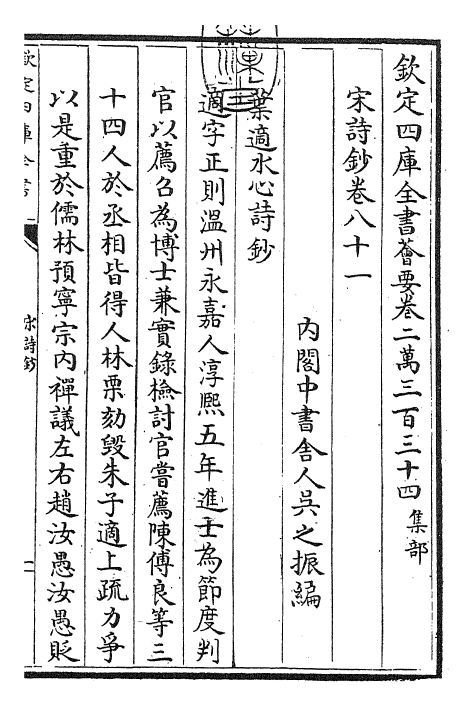 欽定四庫全書薈要卷二萬三百三十四集部
宋詩鈔卷八十一
内閣中書舍人吳之振編
葉適水心詩鈔
適字正則溫州永嘉人淳熙五年進士為節度判
官以薦召為博士兼實錄檢討官嘗薦陳傅良等三
十四人於丞相皆得人林栗劾毀朱子適上疏力爭
以是重於儒林預寧宗内禪議左右趙汝愚汝愚貶
欽定四庫全書
宋詩鈔